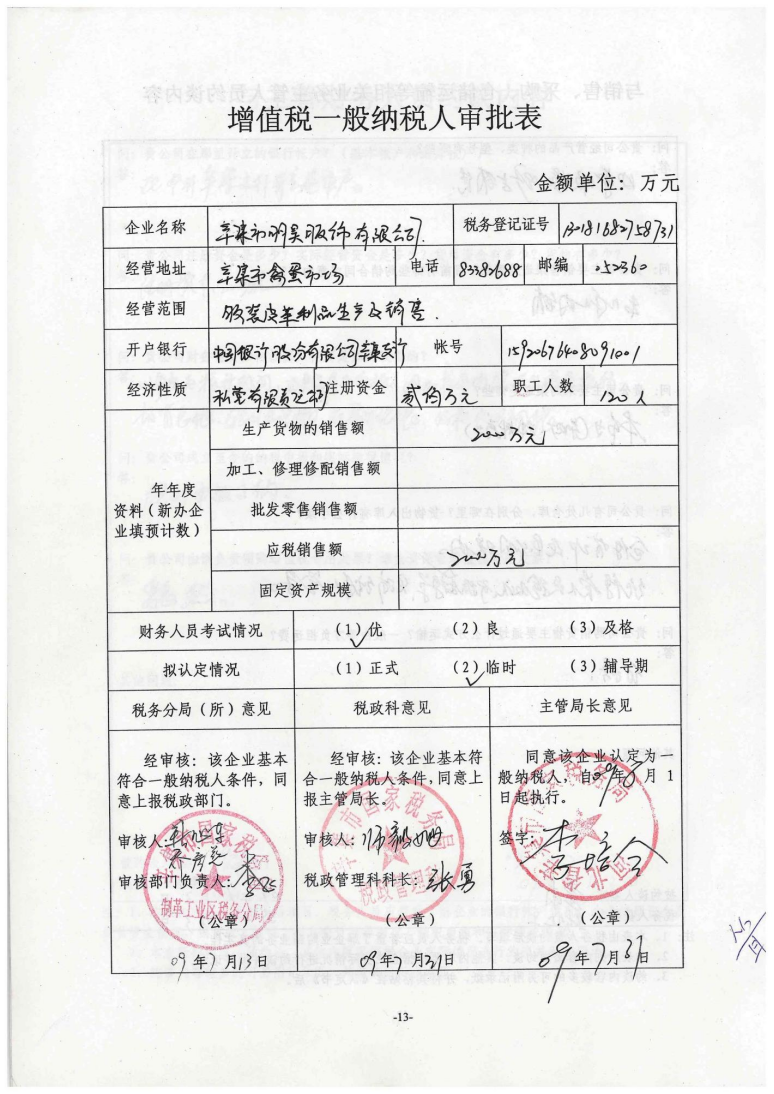 增值税一般纳税人审批表
金额单位：万元
企业名称 辛集市明昊服饰有限公司 税务登记证号
经营地址 辛集市禽蛋市场 电话 83382688 邮编 052360
经营范围 服装皮革制品生产及销售.
开户银行 中国银行股份有限公司辛集支行 帐号
经济性质 私营有限责任公司 注册资金 贰佰万元 职工人数 120人
年年度
资料（新办企
业填预计数）
生产货物的销售额 2000万元
加工、修理修配销售额
批发零售销售额
应税销售额 2000万元
固定资产规模
财务人员考试情况 （1）优 （2）良 （3）及格
拟认定情况 （1）正式 （2）临时 （3）辅导期
税务分局（所）意见 税政科意见 主管局长意见
经审核：该企业基本
符合一般纳税人条件，同
意上报税政部门。
审核人：
审核部门负责人：
制革工业区税务分局
（公章）
09年7月13日
经审核：该企业基本符
合一般纳税人条件，同意上
报主管局长。
审核人：
税政管理科科长：张勇
（公章）
09年7月31日
同意该企业认定为一
般纳税人，自09年8月1
日起执行。
签字：
（公章）
09年7月31日
-13-